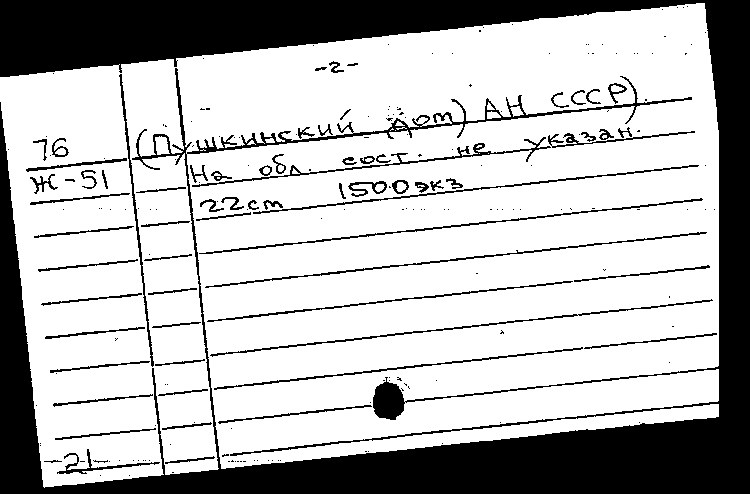 -2-
76 (Пушкинский Дом) АН СССР).
Ж-51 На обл. сост. не указан.
22cm 1500экз
21